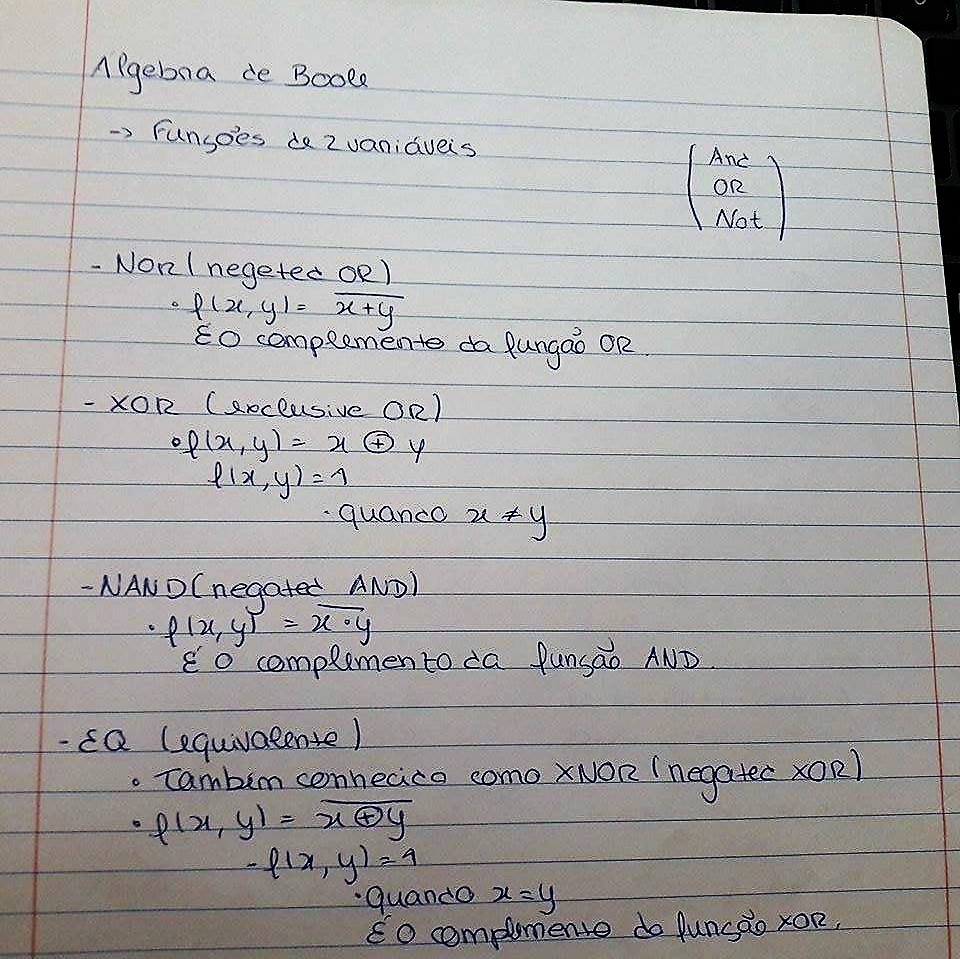 Algebra de Boole
-> Funções de 2 variáveis
And
OR
Not
- NOR (negeted OR)
• f(x, y) = \overline{x+y}
É O complemento da função OR.
- XOR (exclusive OR)
• f(x, y) = x ⊕ y
f(x, y) = 1
· quando x ≠ y
- NAND (negated AND)
• f(x, y) = \overline{x · y}
É O complemento da função AND.
- EQ (equivalente)
• Também conhecido como XNOR (negated XOR)
• f(x, y) = \overline{x ⊕ y}
- f(x, y) = 1
· quando x = y
É O complemento da função XOR.